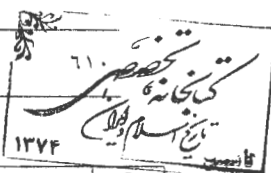 کتابخانه تخصصی
۶۱۰
تاریخ اسلام و ایران
۱۳۷۴